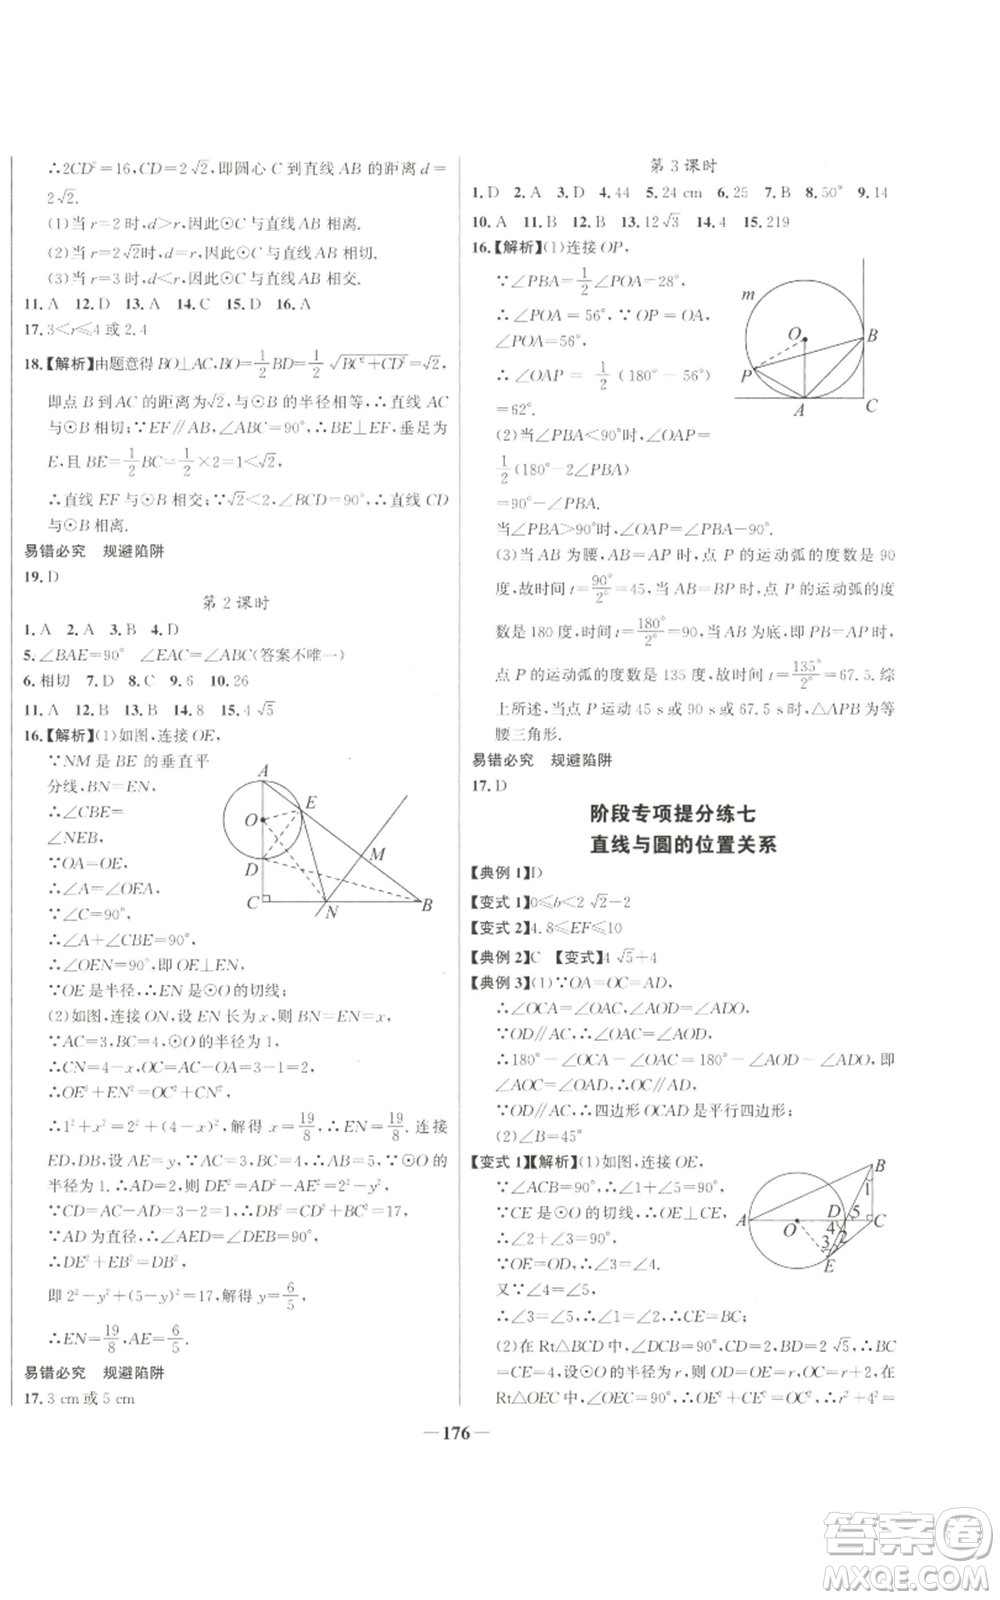 ∴2CD²=16,CD=2√2,即圆心 C 到直线 AB 的距离 d=
2√2.
(1)当 r=2 时,d>r,因此⊙C 与直线 AB 相离.
(2)当 r=2√2时,d=r,因此⊙C 与直线 AB 相切.
(3)当 r=3 时,d<r,因此⊙C 与直线 AB 相交.
11. A 12. D 13. A 14. C 15. D 16. A
17. 3<r≤4 或 2.4
18.【解析】由题意得 BO⊥AC,BO=1/2BD=1/2√(BC²+CD²)=√2,
即点 B 到 AC 的距离为√2,与⊙B 的半径相等,∴直线 AC
与⊙B 相切;∵EF∥AB,∠ABC=90°,∴BE⊥EF,垂足为
E,且 BE=1/2BC=1/2×2=1<√2,
∴直线 EF 与⊙B 相交;∵√2<2,∠BCD=90°,∴直线 CD
与⊙B 相离.
易错必究 规避陷阱
19. D
第 2 课时
1. A 2. A 3. B 4. D
5. ∠BAE=90° ∠EAC=∠ABC(答案不唯一)
6. 相切 7. D 8. C 9. 6 10. 26
11. A 12. B 13. B 14. 8 15. 4√5
16.【解析】(1)如图,连接 OE,
∵NM 是 BE 的垂直平
分线,BN=EN,
∴∠CBE=
∠NEB,
∵OA=OE,
∴∠A=∠OEA,
∵∠C=90°,
∴∠A+∠CBE=90°,
∴∠OEN=90°,即 OE⊥EN,
∵OE 是半径,∴EN 是⊙O 的切线;
(2)如图,连接 ON,设 EN 长为 x,则 BN=EN=x
∵AC=3,BC=4,⊙O 的半径为 1,
∴CN=4-x,OC=AC-OA=3-1=2,
∴OE²+EN²=OC²+CN²,
∴1²+x²=2²+(4-x)²,解得 x=19/8,∴EN=19/8.连接
ED,DB,设 AE=y,∵AC=3,BC=4,∴AB=5,∵⊙O 的
半径为 1.∴AD=2,则 DE²=AD²-AE²=2²-y²,
∵CD=AC-AD=3-2=1,∴DB²=CD²+BC²=17,
∵AD 为直径,∴∠AED=∠DEB=90°,
∴DE²+EB²=DB²,
即 2²-y²+(5-y)²=17,解得 y=6/5,
∴EN=19/8,AE=6/5.
易错必究 规避陷阱
17. 3 cm 或 5 cm
A
E
O
D
M
C
N
B
第 3 课时
1. D 2. A 3. D 4. 44 5. 24 cm 6. 25 7. B 8. 50° 9. 14
10. A 11. B 12. B 13. 12√3 14. 4 15. 219
16.【解析】(1)连接 OP,
∵∠PBA=1/2∠POA=28°,
∴∠POA=56°,∵OP=OA,
∠POA=56°,
∴∠OAP=1/2(180°-56°)
=62°.
(2)当∠PBA<90°时,∠OAP=
1/2(180°-2∠PBA)
=90°-∠PBA.
当∠PBA>90°时,∠OAP=∠PBA-90°.
(3)当 AB 为腰,AB=AP 时,点 P 的运动弧的度数是 90
度,故时间 t=90°/2°=45,当 AB=BP 时,点 P 的运动弧的度
数是 180 度,时间 t=180°/2°=90,当 AB 为底,即 PB=AP 时,
点 P 的运动弧的度数是 135 度,故时间 t=135°/2°=67.5.综
上所述,当点 P 运动 45 s 或 90 s 或 67.5 s 时,△APB 为等
腰三角形.
易错必究 规避陷阱
17. D
m
O
B
P
A
C
阶段专项提分练七
直线与圆的位置关系
【典例 1】D
【变式 1】0≤b<2√2-2
【变式 2】4.8≤EF≤10
【典例 2】C 【变式】4√5+4
【典例 3】(1)∵OA=OC=AD,
∴∠OCA=∠OAC,∠AOD=∠ADO,
∵OD∥AC,∴∠OAC=∠AOD,
∴180°-∠OCA-∠OAC=180°-∠AOD-∠ADO,即
∠AOC=∠OAD,∴OC∥AD,
∵OD∥AC,∴四边形 OCAD 是平行四边形;
(2)∠B=45°
【变式 1】【解析】(1)如图,连接 OE,
∵∠ACB=90°,∴∠1+∠5=90°.
∵CE 是⊙O 的切线,∴OE⊥CE,
∴∠2+∠3=90°,
∵OE=OD,∴∠3=∠4.
又∵∠4=∠5,
∴∠3=∠5,∴∠1=∠2,∴CE=BC;
(2)在 Rt△BCD 中,∠BCD=90°,CD=2,BD=2√5,
BC=CE=4,设⊙O 的半径为 r,则 OD=OE=r,OC=r+2,在
Rt△OEC 中,∠OEC=90°,∴OE²+CE²=OC²,∴r²+4²=
B
1
D
5
A
O
4
C
3
2
E
— 176 —
答案卷
MXQE.COM